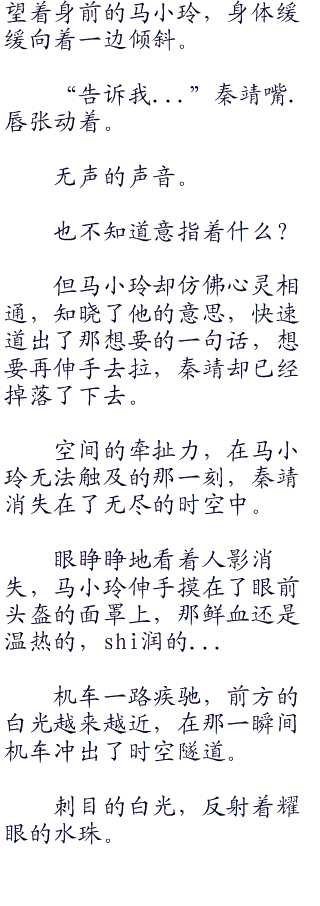 望着身前的马小玲，身体缓
缓向着一边倾斜。
“告诉我...”秦靖嘴.
唇张动着。
无声的声音。
也不知道意指着什么？
但马小玲却仿佛心灵相
通，知晓了他的意思，快速
道出了那想要的一句话，想
要再伸手去拉，秦靖却已经
掉落了下去。
空间的牵扯力，在马小
玲无法触及的那一刻，秦靖
消失在了无尽的时空中。
眼睁睁地看着人影消
失，马小玲伸手摸在了眼前
头盔的面罩上，那鲜血还是
温热的，shi润的...
机车一路疾驰，前方的
白光越来越近，在那一瞬间
机车冲出了时空隧道。
刺目的白光，反射着耀
眼的水珠。